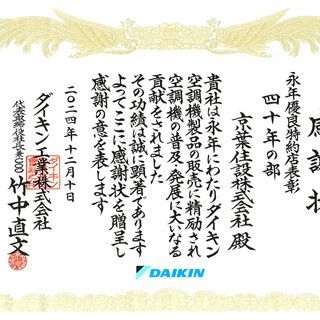 感謝状
永年優良特約店表彰
四十年の部
京葉住設株式会社 殿
貴社は永年にわたりダイキン
空調機製品の販売に精励され
空調機の普及、発展に大いなる
貢献をされました
その功績は誠に顕著であります
よってここに感謝状を贈呈し
感謝の意を表します
二〇二四年十二月十日
ダイキン工業株式会社
代表取締役社長兼COO 竹中直文
DAIKIN